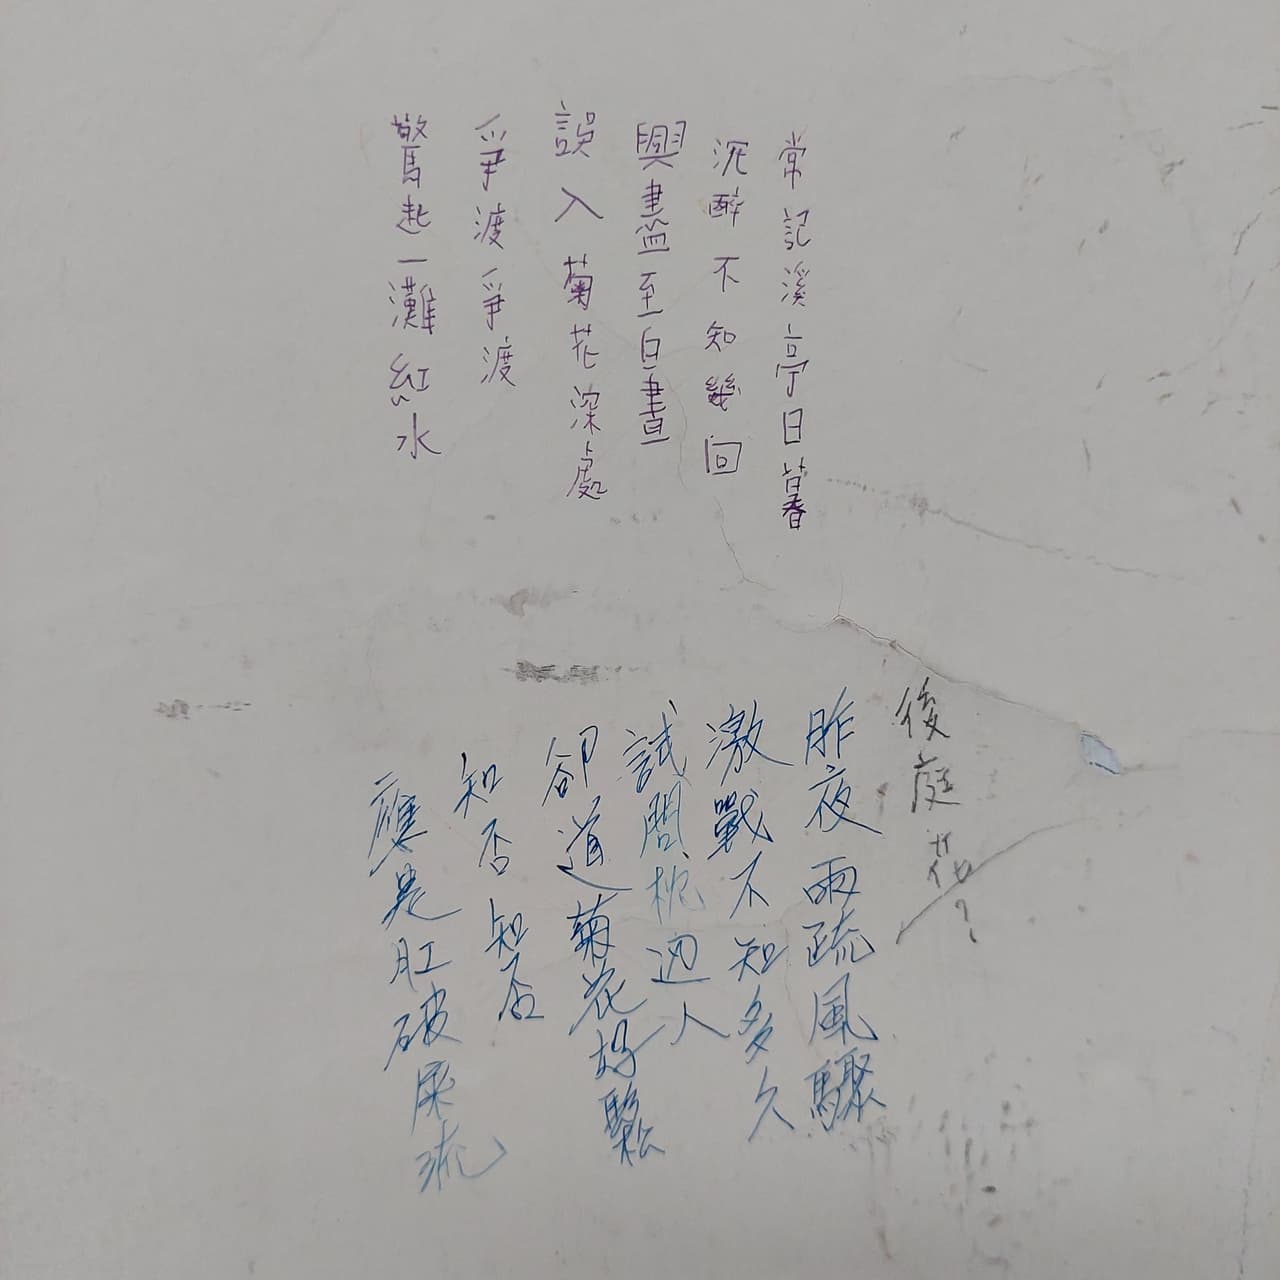 常記溪亭日暮
沉醉不知幾回
興盡至白晝
誤入菊花深處
爭渡爭渡
驚起一灘紅水
後庭花?
昨夜雨疏風驟
激戰不知多久
試問枕邊人
卻道菊花好鬆
知否知否
應是肛破屎流